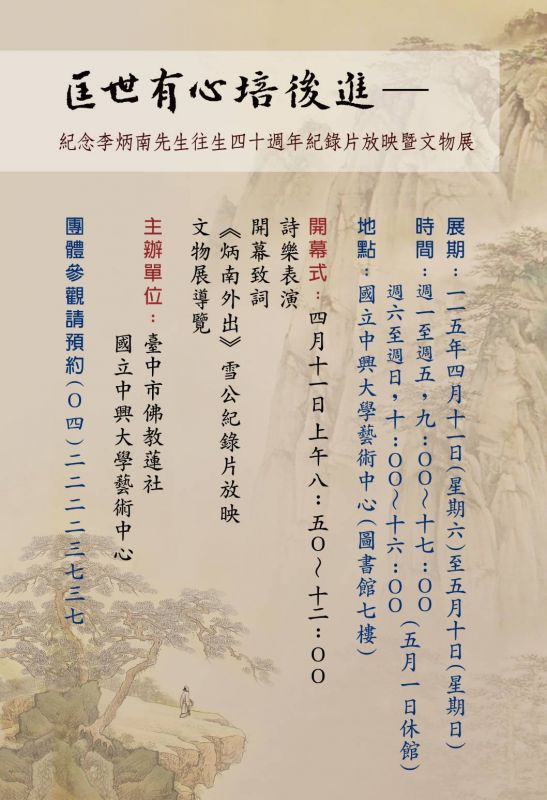 匡世有心培後進—
紀念李炳南先生往生四十週年紀錄片放映暨文物展
展期：一一五年四月十一日(星期六)至五月十日(星期日)
時間：週一至週五，九：００～十七：００
週六至週日，十：００～十六：００(五月一日休館)
地點：國立中興大學藝術中心(圖書館七樓)
開幕式：四月十一日上午八：五０～十二：００
詩樂表演
開幕致詞
《炳南外出》雪公紀錄片放映
文物展導覽
主辦單位：臺中市佛教蓮社
國立中興大學藝術中心
團體參觀請預約(０四)二二二二三七三七